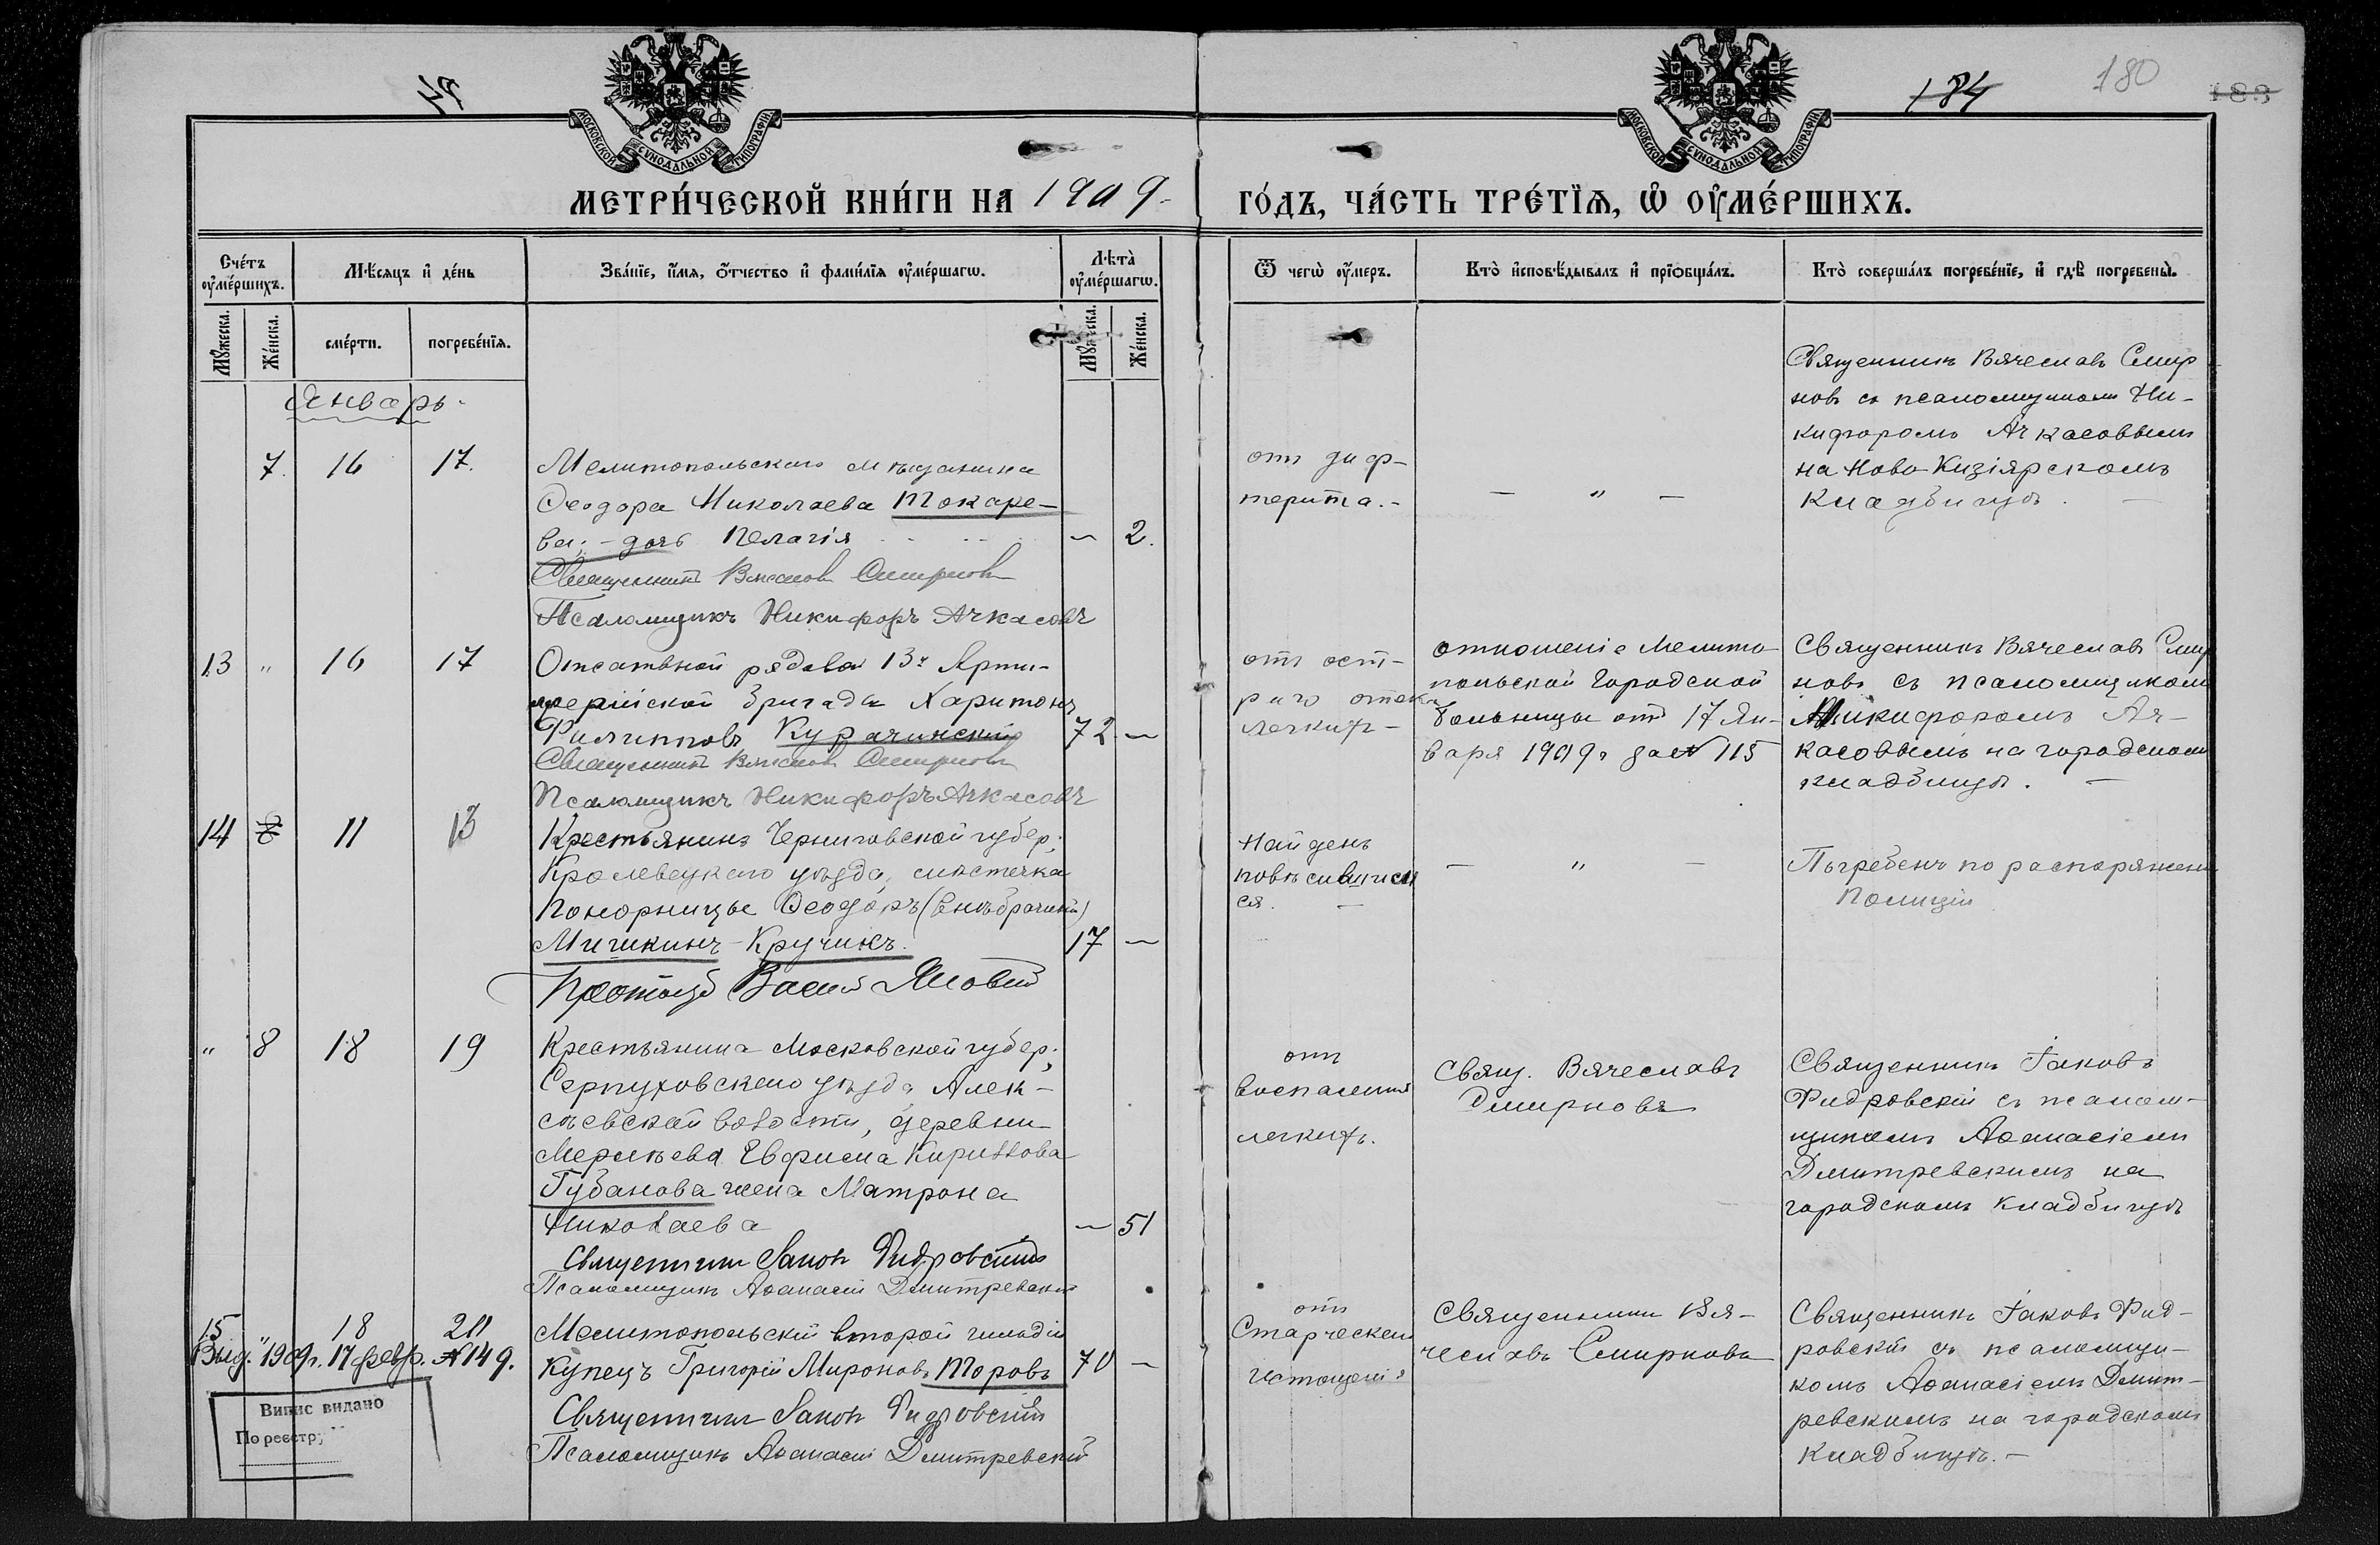 184
180
183
МОСКОВСКОЙ СѴНОДАЛЬНОЙ ТИПОГРАФІИ
МОСКОВСКОЙ СѴНОДАЛЬНОЙ ТИПОГРАФІИ
МЕТРИ́ЧЕСКОЙ КНИ́ГИ НА 1909
ГО́ДЪ, ЧА́СТЬ ТРЕ́ТЇѦ, Ѽ ОУ҆МЕ́РШИХЪ.
Сче́тъ оу҆ме́ршихъ.
Мѣ́сяцъ и҆ де́нь
Зва́нїе, и҆́мя, ѻ҆́тчество и҆ фами́лїя оу҆ме́ршагѡ.
Лѣта̀ оу҆ме́ршагѡ.
Ѿ чегѡ̀ оу҆́меръ.
Кто̀ и҆сповѣ́дывалъ и҆ прїобща́лъ.
Кто̀ соверша́лъ погребе́нїе, и҆ гдѣ̀ погребены̀.
Мꙋ́жеска.
Же́нска.
сме́рти.
погребе́нїя.
Мꙋ́жеска.
Же́нска.
Январь.
7. 16 17.
Мелитопольскаго мѣщанина
Ѳеодора Николаева Токаре-
ва, - дочь Пелагія — 2.
Священникъ Вячеславъ Смирновъ
Псаломщикъ Никифоръ Ачкасовъ
отъ диф-
терита. -
— " —
Священникъ Вячеславъ Смир
новъ съ псаломщикомъ Ни-
кифоромъ Ачкасовымъ
на Ново-Кизіярскомъ
кладбищѣ. —
13 " 16 17
Отставной рядовой 13й Арти-
лерійской бригады Харитонъ
Филипповъ Курачинскій 72 —
Священникъ Вячеславъ Смирновъ
Псаломщикъ Никифоръ Ачкасовъ
отъ ост-
раго отека
легкихъ -
отношеніе Мелито-
польской Городской
больницы отъ 17 Ян-
варя 1909 г за № 115
Священникъ Вячеславъ Смир
новъ съ псаломщикомъ
Никифоромъ Ач-
касовымъ на городскомъ
кладбищѣ. —
14 8 11 13
Крестьянинъ Черниговской губер.
Кролевецкаго уѣзда, мѣстечка
Понорницы Ѳеодоръ (внѣбрачный)
Мишкинъ-Кручикъ. 17 —
Найденъ
повѣсившим
ся. —
— " —
Погребенъ по распоряжен
Полиціи
" 8 18 19
Крестьянина Московской губер.,
Серпуховскаго уѣзда, Алек-
сѣевской волости, деревни
Евфима Кириллова
Губанова жена Матрона
Николаева — 51
Священникъ Іаковъ Фидровскій
Псаломщикъ Аѳанасій Дмитревскій
отъ
воспаленія
легкихъ.
Свящ. Вячеславъ
Смирновъ
Священникъ Іаковъ
Фидровскій съ псалом-
щикомъ Аѳанасіемъ
Дмитревскимъ на
городскомъ кладбищѣ
15 " 18 20
Выд. 1909 г. 17 февр. № 149.
Випис видано
По реєстр.
Мелитопольскій второй гильдіи
купецъ Григорій Мироновъ Торовъ 70 —
Священникъ Іаковъ Фидровскій
Псаломщикъ Аѳанасій Дмитревскій
отъ
Старческаго
истощенія
Священникъ Вя-
чеславъ Смирновъ
Священникъ Іаковъ Фид-
ровскій съ псаломщи-
комъ Аѳанасіемъ Дмит-
ревскимъ на городскомъ
кладбищѣ. —